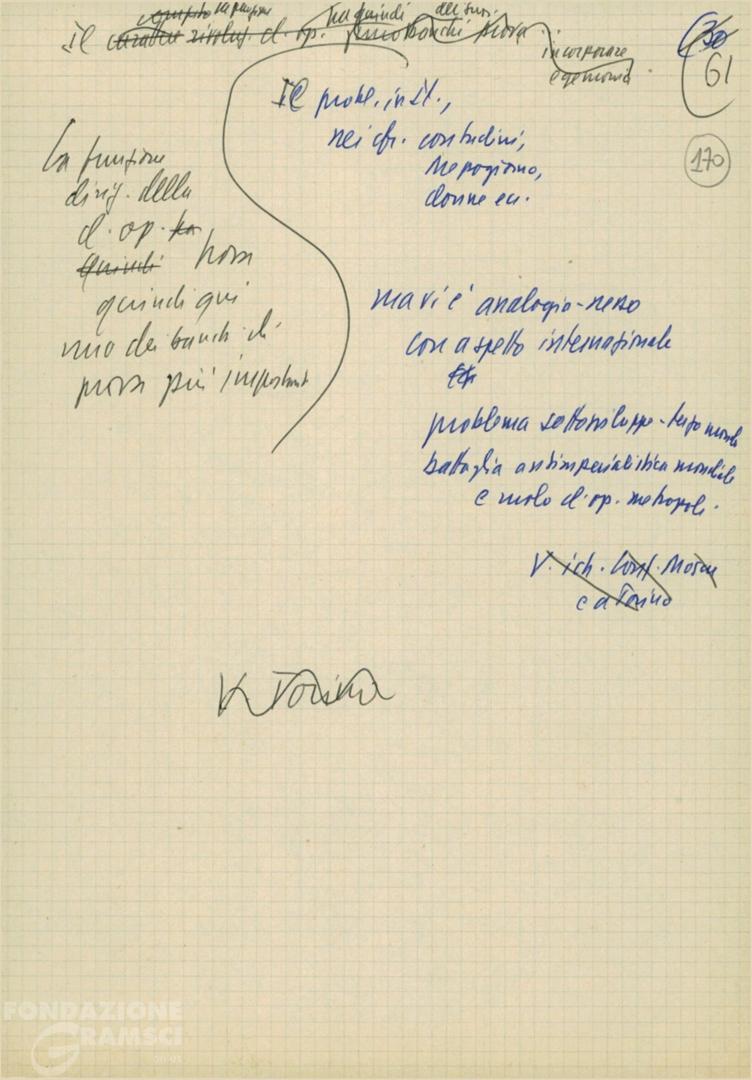 compito la funzione
ha quindi dei suoi
Il carattere rivoluz. cl. op. banchi prova
incorporare
egemonia
30
61
170
Il probl. inst.,
nei cfr. contadini,
Mezzogiorno,
donne ecc.
La funzione
dirig. della
cl. op. ha
quindi trova
quindi qui
uno dei banchi di
prova più important
ma vi è analogia-nesso
con aspetto internazionale
problema sottosviluppo-terzo mondo
battaglia antimperialistica mondiale
e ruolo cl. op. metropoli.
V. ich. Conf. Mosca
e a Torino
V. Torino
FONDAZIONE
GRAMSCI